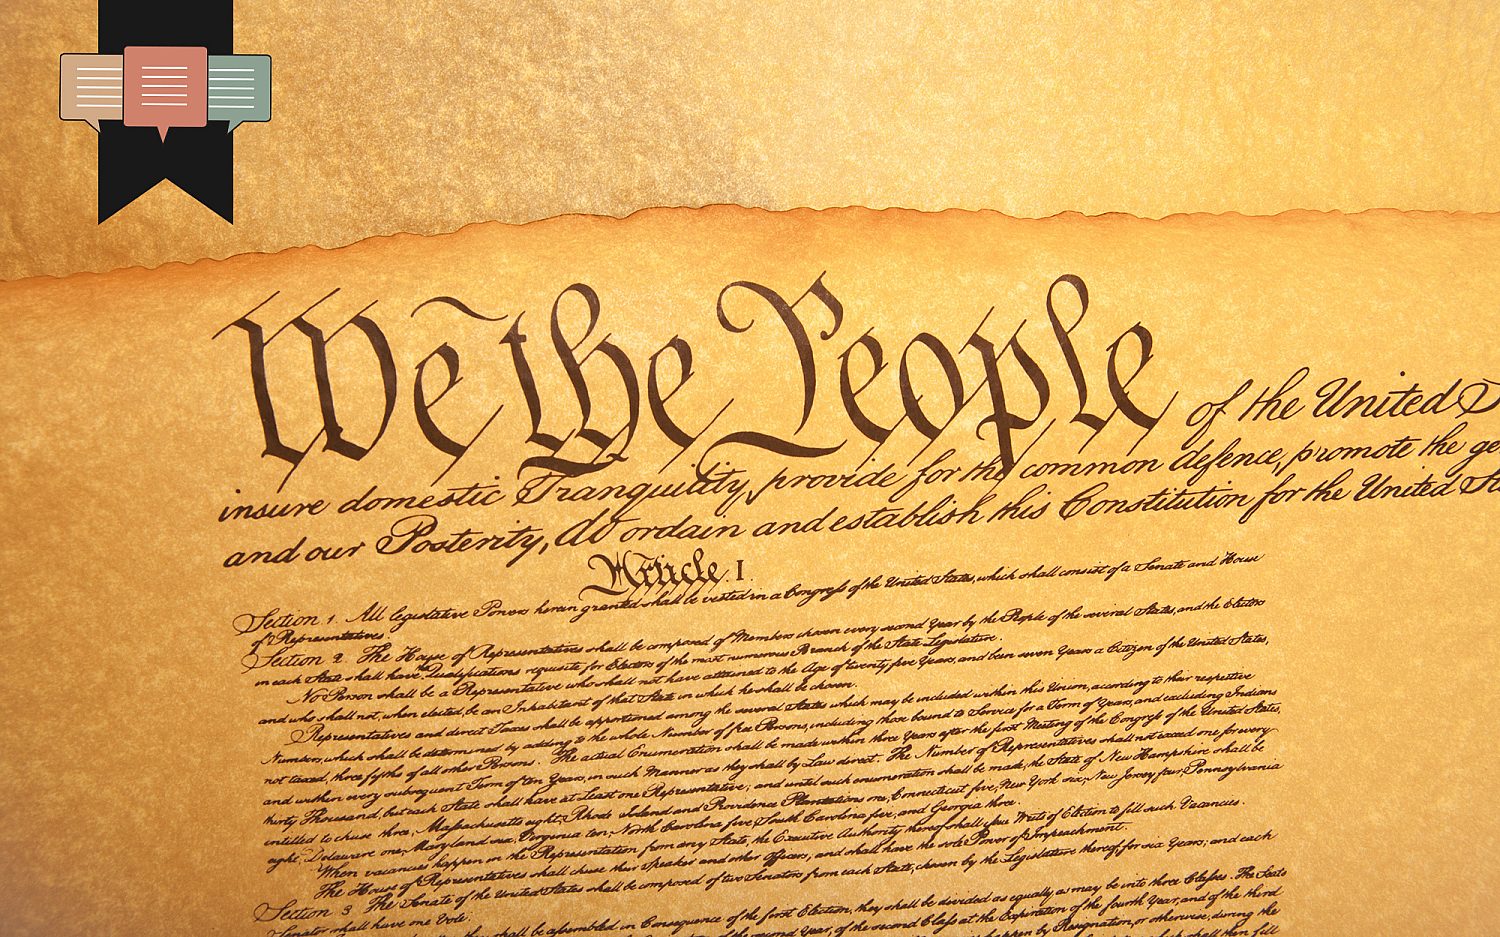 We the People of the United S
insure domestic Tranquility, provide for the common defence, promote the ge
and our Posterity, do ordain and establish this Constitution for the United Sta
Article. I.
Section 1. All legislative Powers herein granted shall be vested in a Congress of the United States, which shall consist of a Senate and House
of Representatives.
Section 2. The House of Representatives shall be composed of Members chosen every second Year by the People of the several States, and the Electors
in each State shall have the Qualifications requisite for Electors of the most numerous Branch of the State Legislature.
No Person shall be a Representative who shall not have attained to the Age of twenty five Years, and been seven Years a Citizen of the United States,
and who shall not, when elected, be an Inhabitant of that State in which he shall be chosen.
Representatives and direct Taxes shall be apportioned among the several States which may be included within this Union, according to their respective
Numbers, which shall be determined by adding to the whole Number of free Persons, including those bound to Service for a Term of Years, and excluding Indians
not taxed, three fifths of all other Persons. The actual Enumeration shall be made within three Years after the first Meeting of the Congress of the United States,
and within every subsequent Term of ten Years, in such Manner as they shall by Law direct. The Number of Representatives shall not exceed one for every
thirty Thousand, but each State shall have at Least one Representative; and until such enumeration shall be made, the State of New Hampshire shall be
intitled to chuse three, Massachusetts eight, Rhode Island and Providence Plantations one, Connecticut five, New York six, New Jersey four, Pennsylvania
eight, Delaware one, Maryland six, Virginia ten, North Carolina five, South Carolina five, and Georgia three.
When vacancies happen in the Representation from any State, the Executive Authority thereof shall issue Writs of Election to fill such Vacancies.
The House of Representatives shall chuse their Speaker and other Officers; and shall have the sole Power of Impeachment.
Section 3. The Senate of the United States shall be composed of two Senators from each State, chosen by the Legislature thereof, for six Years; and each
Senator shall have one Vote.
they shall be assembled in Consequence of the first Election, they shall be divided as equally as may be into three Classes. The Seats
of the second Year, of the second Class at the Expiration of the fourth Year, and of the third
happen by Resignation, or otherwise, during the
shall then fill